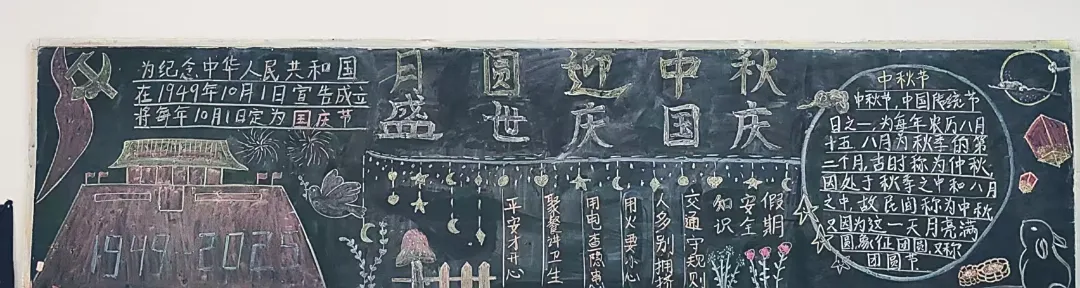 为纪念中华人民共和国
在1949年10月1日宣告成立
将每年10月1日定为国庆节
月圆迎中秋
盛世庆国庆
1949-2025
假期
安全
知识
交通守规则
人多别拥挤
用火要小心
用电查隐患
聚餐讲卫生
平安才开心
中秋节
中秋节,中国传统节
日之一,为每年农历八月
十五,八月为秋季的第
二个月,古时称为仲秋,
因处于秋季之中和八月
之中,故民间称为中秋
又因为这一天月亮满
圆,象征团圆,又称
团圆节